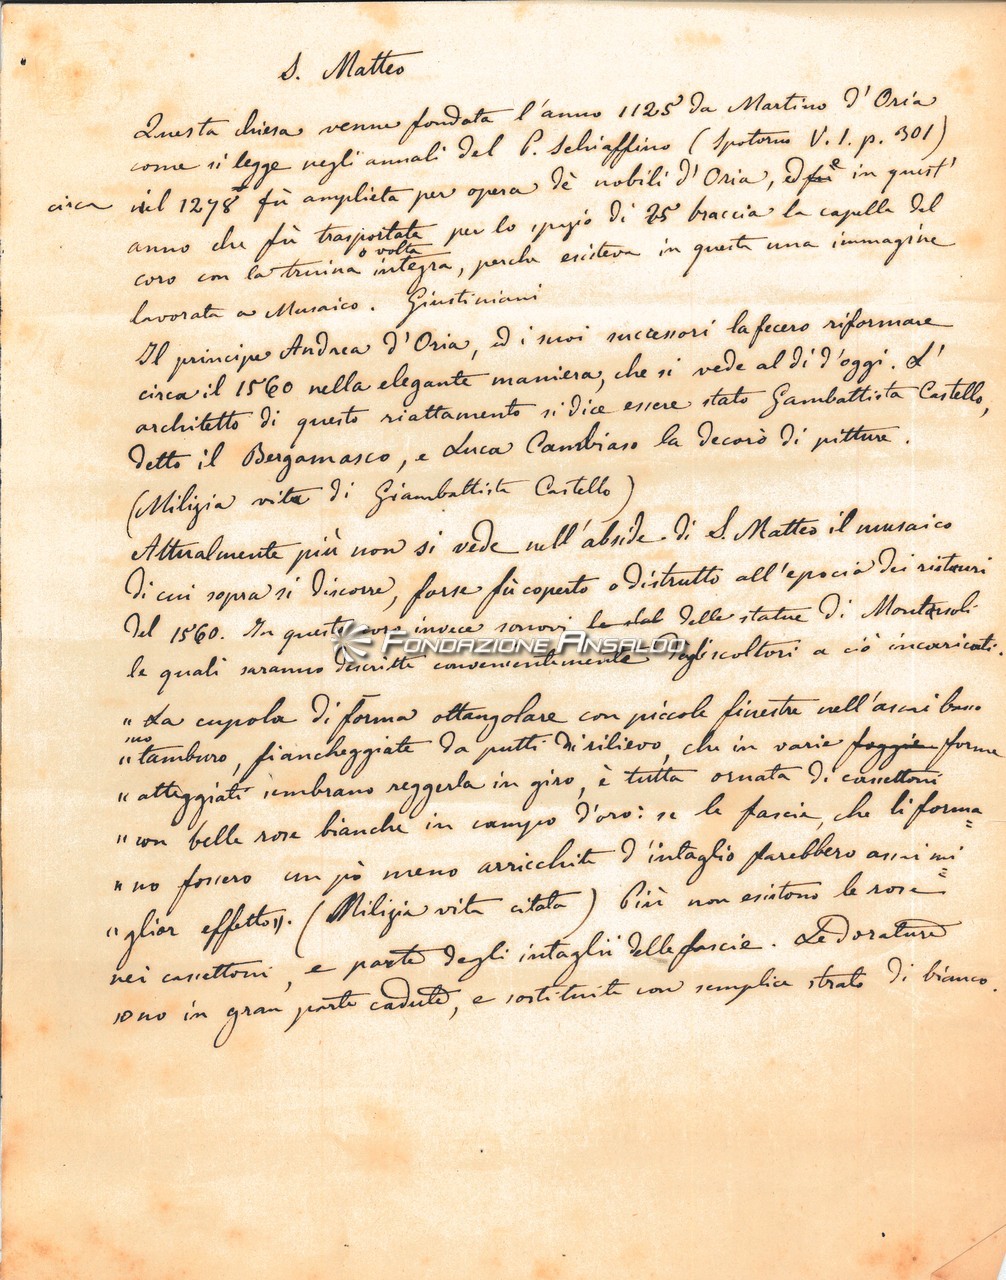 S. Matteo
Questa chiesa venne fondata l'anno 1125 da Martino d'Oria
come si legge negli annali del P. Schiaffino (Spotorno V. 1. p. 301)
circa nel 1278 fù ampliata per opera dè nobili d'Oria, ed fù è in quest'
anno che fù trasportata per lo spazio di 25 braccia la capella del
o volta
coro con la truina integra, perche esisteva in questa una immagine
lavorata a Musaico. Giustiniani
Il principe Andrea d'Oria, ed i suoi successori la fecero riformare
circa il 1560 nella elegante maniera, che si vede al di d'oggi. L'
architetto di questo riattamento si dice essere stato Gambattista Castello,
detto il Bergamasco, e Luca Cambiaso la decorò di pitture.
(Milizia vita di Giambattista Castello)
Attualmente più non si vede nell'abside di S. Matteo il musaico
di cui sopra si discorre, forse fù coperto o distrutto all'epoca dei ristauri
del 1560. In questo coro invece sonovi delle statue di Montorsoli
le quali saranno descritte convenientemente dagli scoltori a ciò incaricati.
Fondazione Ansaldo
" La cupola di forma ottangolare con piccole finestre nell'assai basso
mo
" tamburo, fiancheggiate da putti di rilievo, che in varie foggie forme
" atteggiati sembrano reggerla in giro, è tutta ornata di cassettoni
" con belle rose bianche in campo d'oro: se le fascie, che li forma=
" no fossero un pò meno arricchite d'intaglio farebbero assai mi=
" glior effetto". (Milizia vita citata) Più non esistono le rose
nei cassettoni, e parte degli intaglii delle fascie. Le dorature
sono in gran parte cadute, e sostituite con semplice strato di bianco.